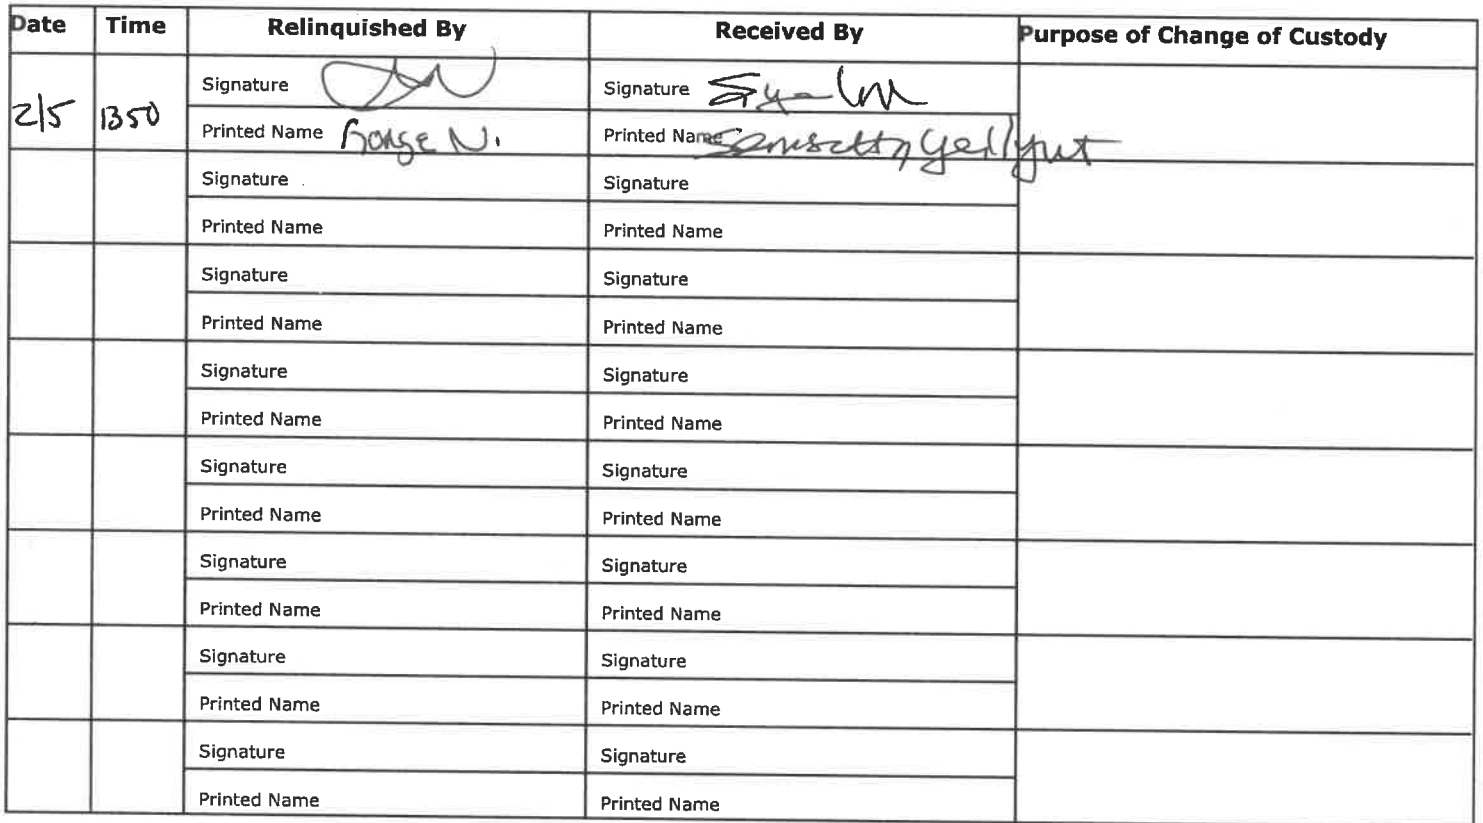 Date Time Relinquished By Received By Purpose of Change of Custody
Signature Signature
2/5 1350
Printed Name George N. Printed Name
Signature Signature
Printed Name Printed Name
Signature Signature
Printed Name Printed Name
Signature Signature
Printed Name Printed Name
Signature Signature
Printed Name Printed Name
Signature Signature
Printed Name Printed Name
Signature Signature
Printed Name Printed Name
Signature Signature
Printed Name Printed Name